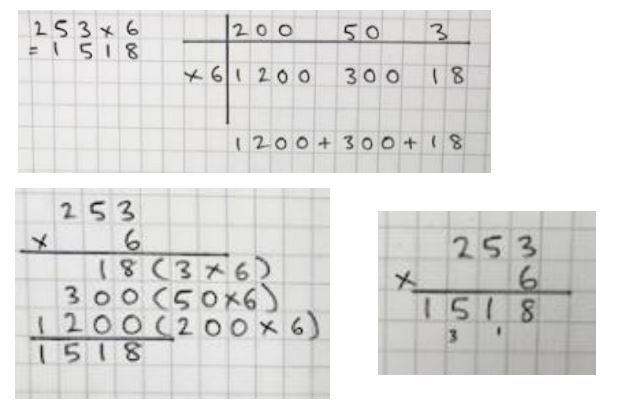 253×6
=1518
200 50 3
×6 1200 300 18
1200+300+18
253
× 6
18(3×6)
300(50×6)
1200(200×6)
1518
253
× 6
1518
3 1